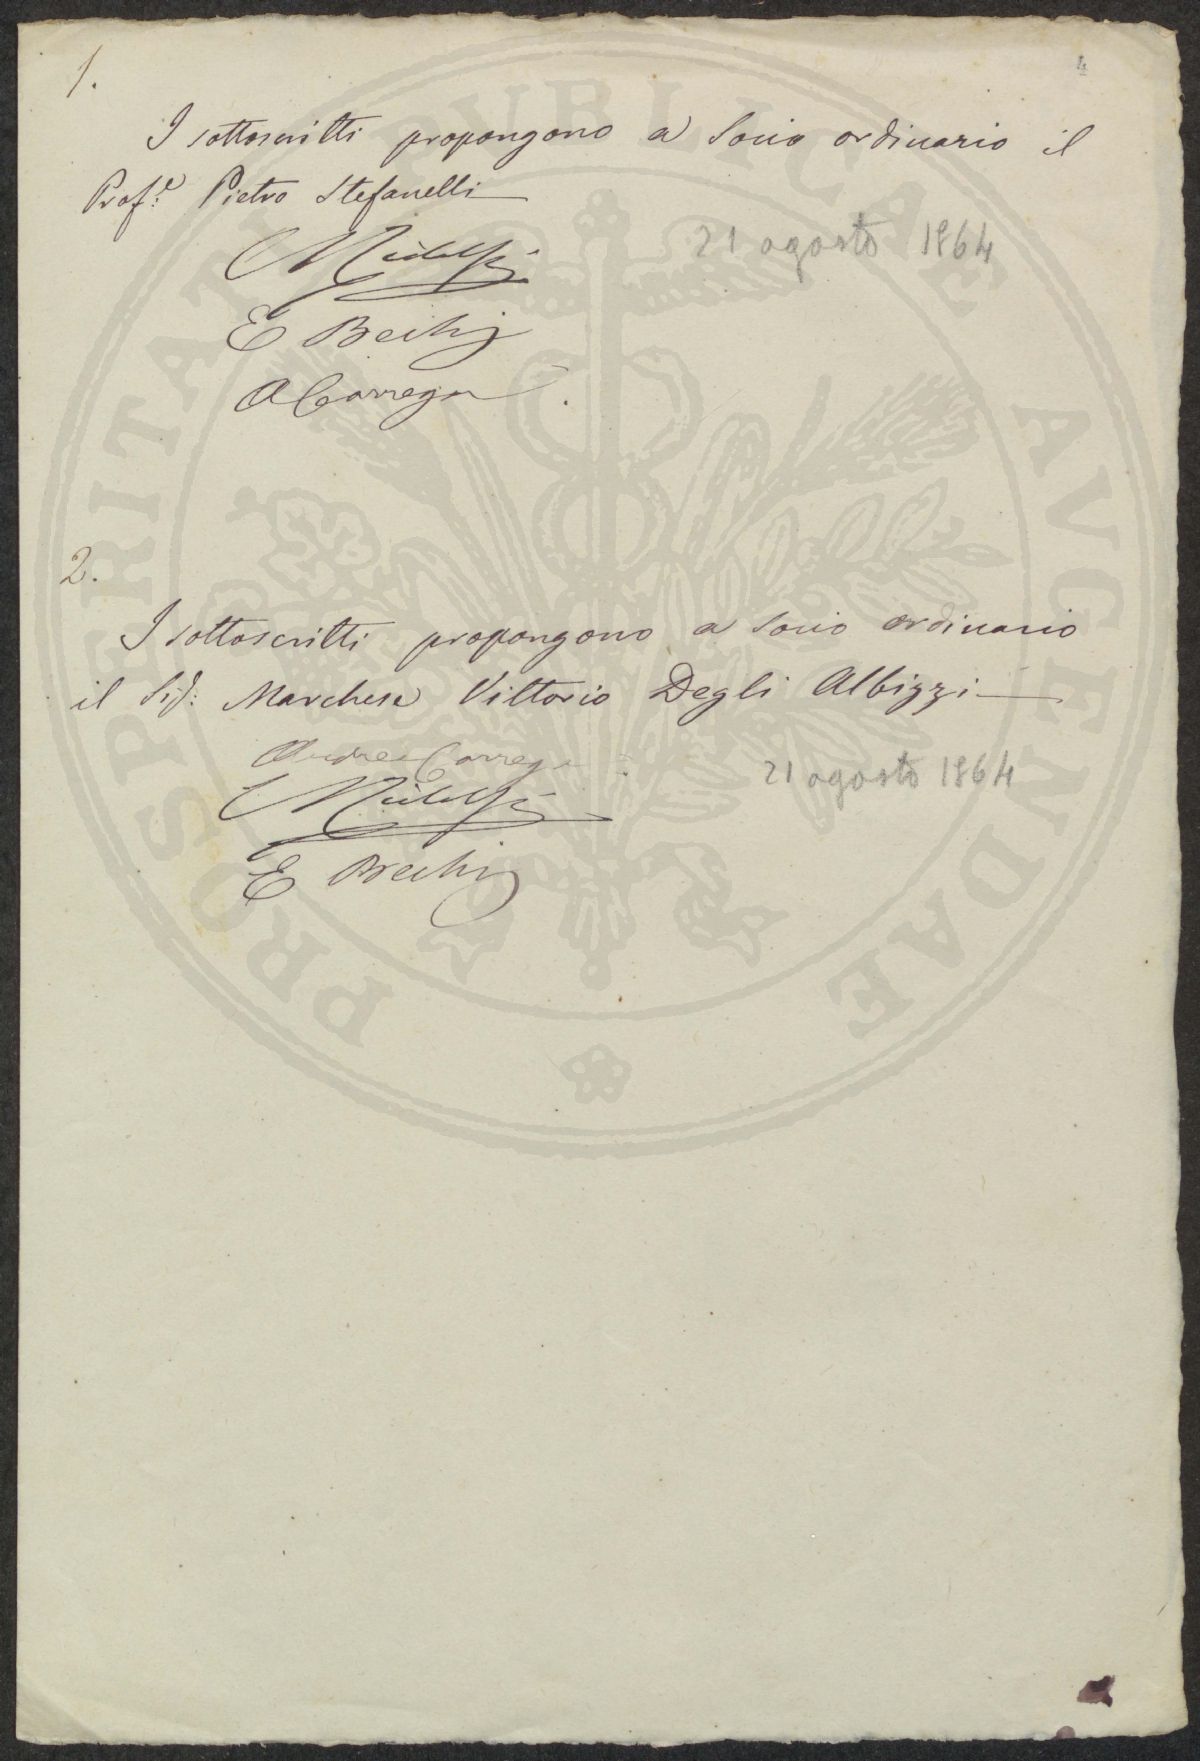 1.
4
I sottoscritti propongono a Socio ordinario il
Prof.e Pietro Stefanelli
21 agosto 1864
E Bechi
A Carrega
2.
I sottoscritti propongono a socio ordinario
il Sig: Marchese Vittorio Degli Albizzi
Andrea Carrega
21 agosto 1864
E Bechi
PROSPERITATI PVBLICAE AVGENDAE